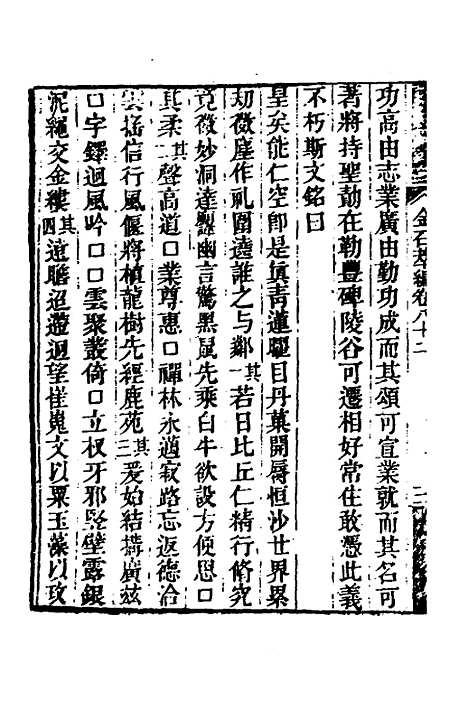 金石萃編卷八十二
功高由志業廣由勤功成而其頌可宣業就而其名可
著將持聖勣在勒豐碑陵谷可遷相好常住敢憑此義
不朽斯文銘曰
皇矣能仁空卽是眞靑蓮曜目丹菓開脣恒沙世界累
劫微塵作礼圍遶誰之与鄰其一若日比丘仁精行脩究
竟微妙洞達幽言驚黑鼠先乘白牛欲設方便思口
其柔其二聲高道口業尊惠口禪林永適寂路忘返德洽
雲搖信行風偃將植龍樹先經鹿苑其三爰始結搆廣茲
口字鐸迴風吟口口雲聚叢倚口立杈牙邪竪壁露銀
泥繩交金縷其四遠瞻迢遰迴望嵬文以粟玉藻以玫